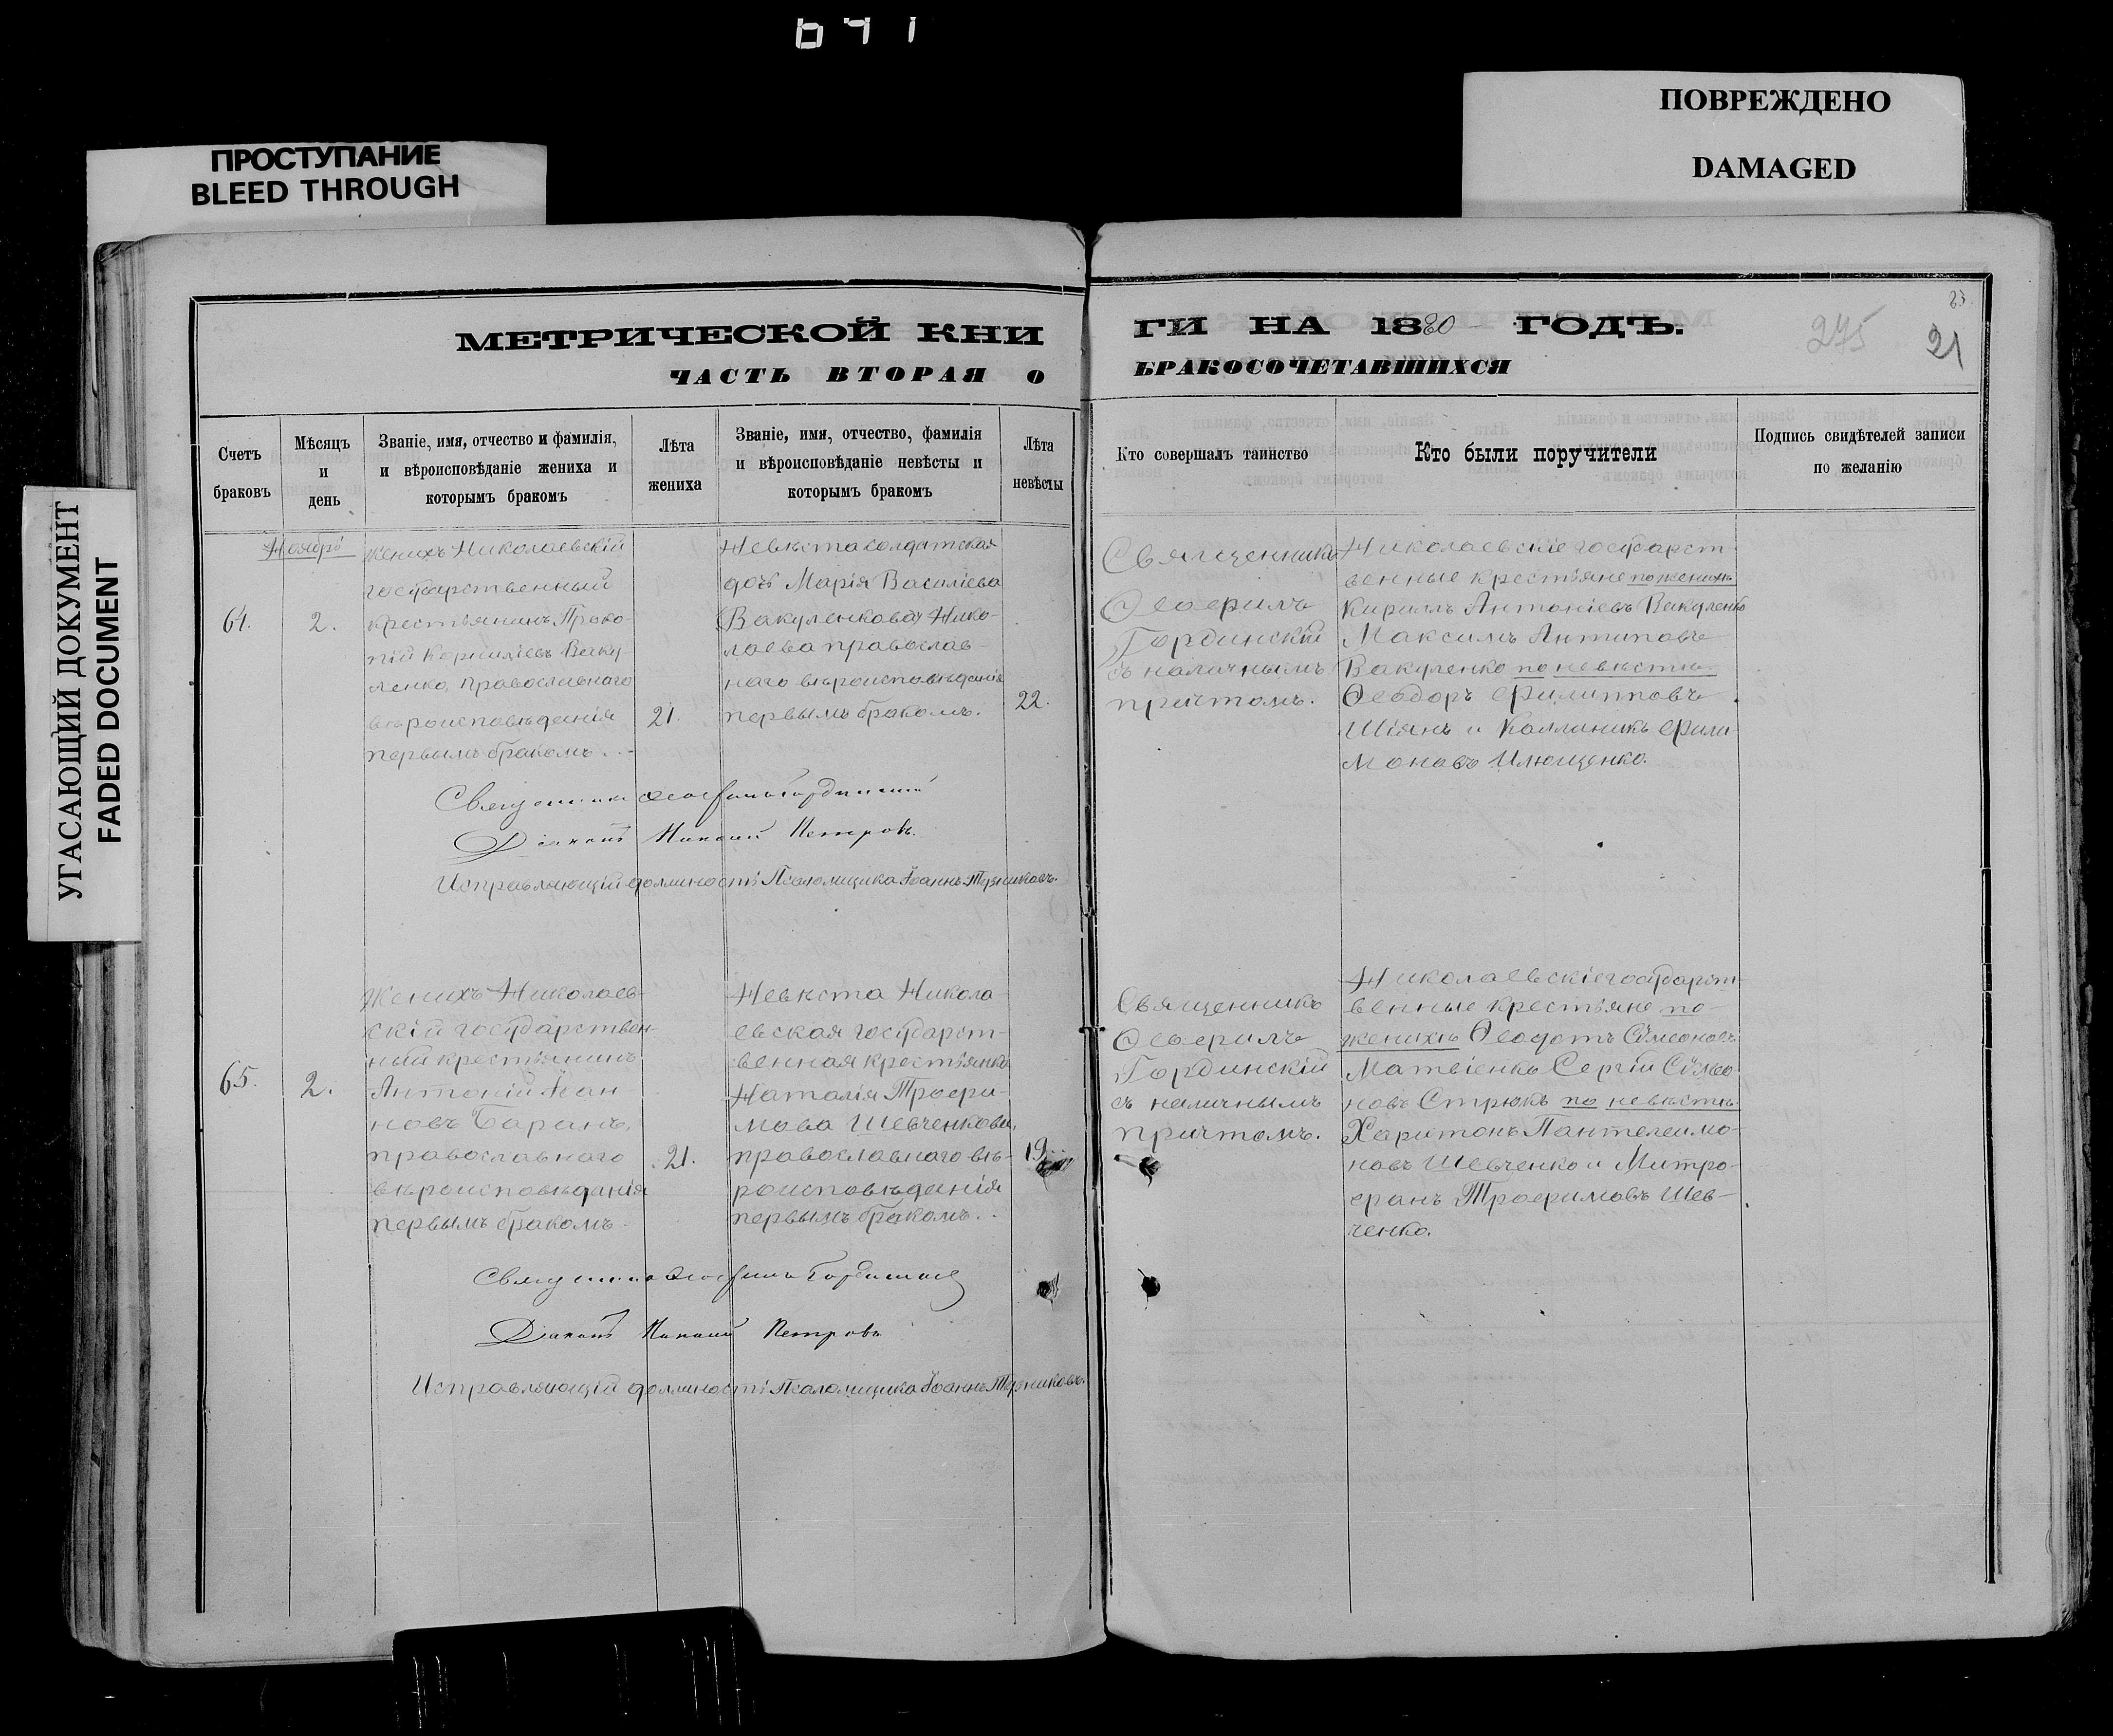 ПРОСТУПАНИЕ
BLEED THROUGH
ПОВРЕЖДЕНО
DAMAGED
УГАСАЮЩИЙ ДОКУМЕНТ
FADED DOCUMENT
МЕТРИЧЕСКОЙ КНИ
ЧАСТЬ ВТОРАЯ О
ГИ НА 1880 ГОДЪ.
БРАКОСОЧЕТАВШИХСЯ
275
23
21
Счетъ
браковъ
Мѣсяцъ
и
день
Званіе, имя, отчество и фамилія,
и вѣроисповѣданіе жениха и
которымъ бракомъ
Лѣта
жениха
Званіе, имя, отчество, фамилія
и вѣроисповѣданіе невѣсты и
которымъ бракомъ
Лѣта
невѣсты
Кто совершалъ таинство
Кто были поручители
Подпись свидѣтелей записи
по желанію
Ноябрь
64.
2.
Женихъ Николаевскій
государственный
крестьянинъ Проко-
пій Корниліевъ Ваку
ленко, православнаго
вѣроисповѣданія
первымъ бракомъ.
21.
Невѣста солдатская
дочь Марія Василіева
Вакуленкова Нико-
лаева православ-
наго вѣроисповѣданія
первымъ бракомъ.
22.
Священникъ
Ѳеофилъ
Гординскій
съ наличнымъ
причтомъ.
Николаевскіе государст-
венные крестьяне по женихѣ
Кириллъ Антоніевъ Вакуленко
Максимъ Антиповъ
Вакуленко по невѣстѣ
Ѳеодоръ Филипповъ
Шіянъ и Каллиникъ Фили
моновъ Илющенко.
Священникъ Ѳеофилъ Гординскій
Діаконъ Петровъ.
Исправляющій должность Псаломщика Іоаннъ
65.
2.
Женихъ Николаев-
скій государствен-
ный крестьянинъ
Антоній Іоан
новъ Баранъ,
православнаго
вѣроисповѣданія
первымъ бракомъ
21.
Невѣста Никола-
евская государст-
венная крестьянка
Наталія Трофи-
мова Шевченкова,
православнаго вѣ-
роисповѣданія
первымъ бракомъ.
19
Священникъ
Ѳеофилъ
Гординскій
съ наличнымъ
причтомъ.
Николаевскіе государст-
венные крестьяне по-
женихѣ Ѳеодотъ Сѵмеоновъ
Матвіенко Сергій Сѵмео
новъ Стрюкъ по невѣстѣ
Харитонъ Пантелеимо-
новъ Шевченко и Митро-
фанъ Трофимовъ Шев-
ченко.
Священникъ Ѳеофилъ Гординскій
Діаконъ Петровъ
Исправляющій должность Псаломщика Іоаннъ